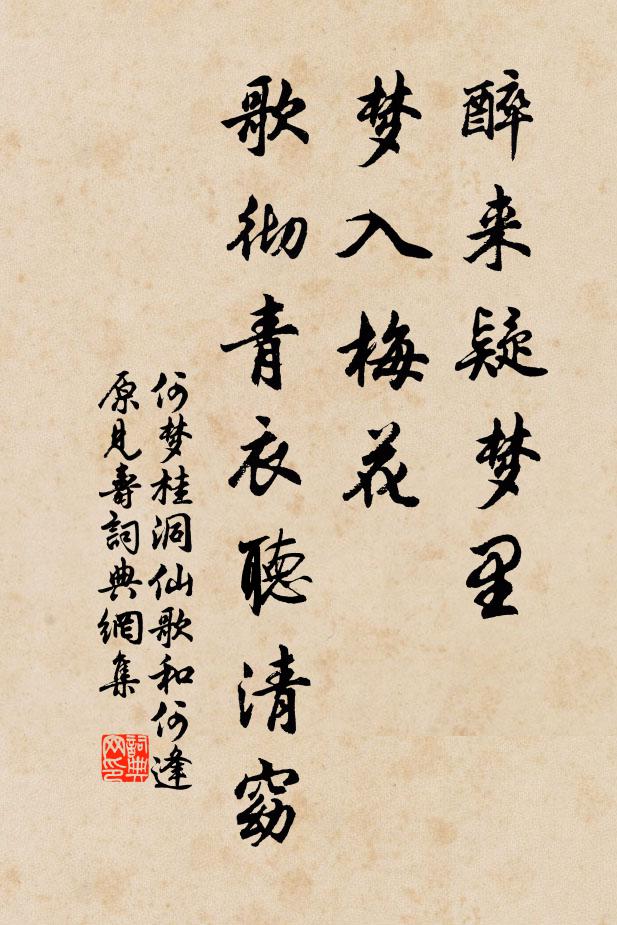 醉来疑梦里
梦入梅花
歌彻青衣聽清窈
何梦桂洞仙歌和何逢
原見壽詞典網集
詞典网印